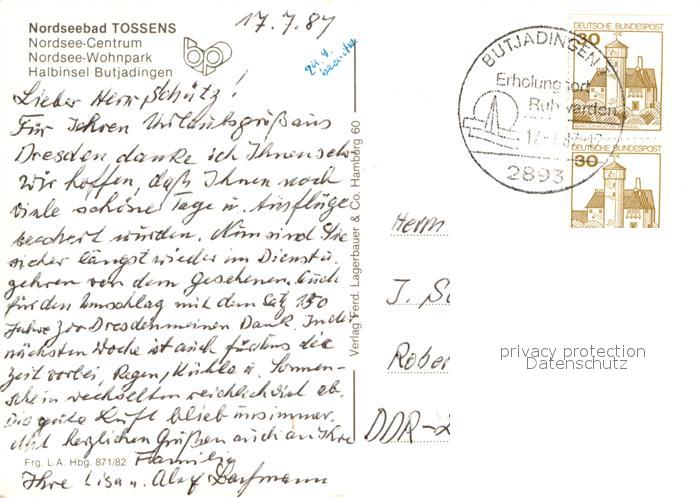 Nordseebad TOSSENS
Nordsee-Centrum
Nordsee-Wohnpark
Halbinsel Butjadingen
17.7.87
Lieber Herr Schütz!
Für Ihren Urlaubsgruß aus
Dresden danke ich Ihnen sehr
Wir hoffen, daß Ihnen noch
viele schöne Tage u. Ausflüge
beschert wurden. Nun sind Sie
sicher längst wieder im Dienst u.
zehren von dem Gesehenen. Auch
für den Umschlag mit dem Satz 150
Jahre Zoo Dresden meinen Dank. In der
nächsten Woche ist auch für uns die
Zeit vorbei, Regen, Kühle u. Sonnen-
schein wechselten reichlich ab.
Die gute Luft blieb uns immer.
Mit herzlichen Grüßen auch an Ihre
Familie
Ihre Lisa u. Olaf
Frg. L.A. Hbg. 871/82
Verlag Ferd. Lagerbauer & Co. Hamburg 60
BUTJADINGEN
Erholungsort
Ruhwarden
2893
DEUTSCHE BUNDESPOST
30
DEUTSCHE BUNDESPOST
30
Herrn
J. Sc
Rober
DDR-
privacy protection
Datenschutz